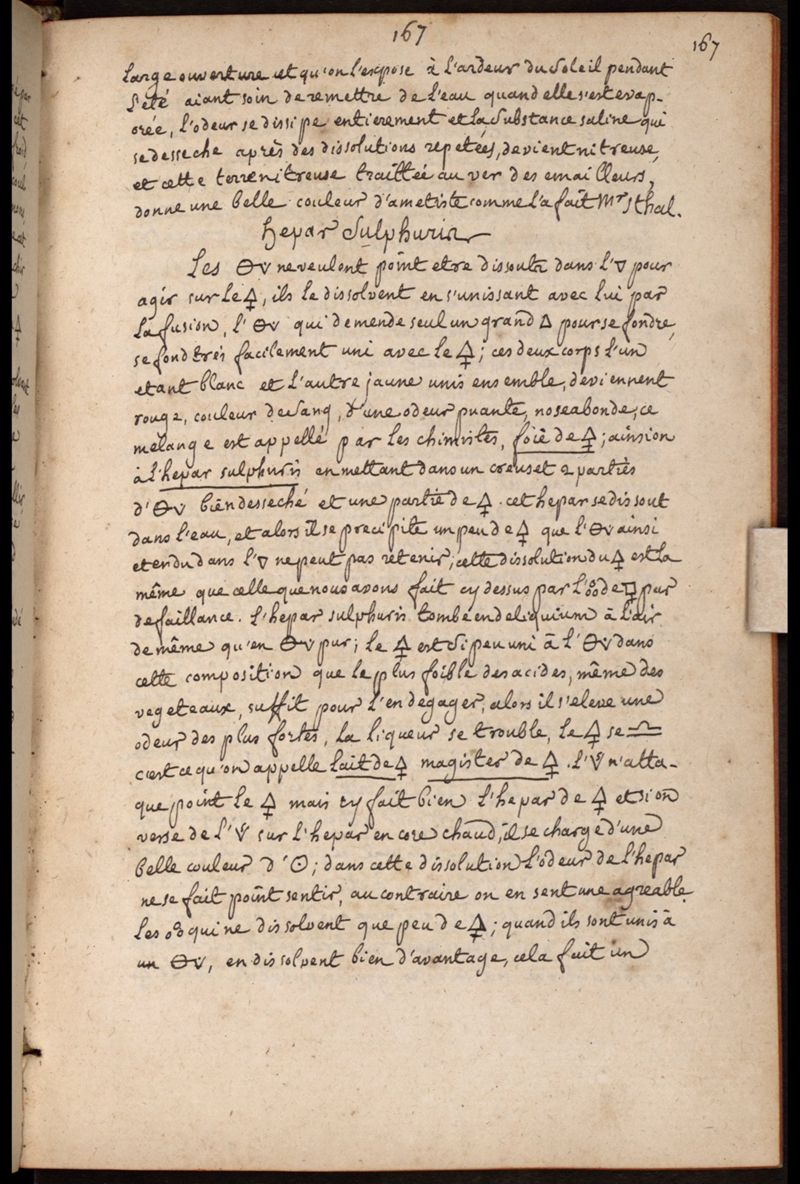 167
167
large ouverture et qu'on l'expose à l'ardeur du soleil pendant
l'été aiant soin de remettre de l'eau quand elle s'est evap-
orée, l'odeur se dissipe entierement et la substance saline qui
se desseche après des dissolutions repetées, devient nitreuse,
et cette terre nitreuse traittée au ver des emailleurs,
donne une belle couleur d'ametiste comme l'a fait Mr Sthal.
hepar Sulphuris
Les 🜔v ne veulent point etre dissouts dans l'🜄 pour
agir sur le 🜍, ils le dissolvent en s'unissant avec lui par
la fusion, l'🜔v qui demende seul un grand 🜂 pour se fondre,
se fond très facilement uni avec le 🜍; ces deux corps l'un
etant blanc et l'autre jaune unis ensemble, deviennent
rouge, couleur de sang, d'une odeur puante, noseabonde; ce
melange est appellé par les chimistes, foië de 🜍; ainsi on
à l'hepar sulphuris en mettant dans un creuset 2 partiës
d'🜔v biën desseché et une partië de 🜍. cet hepar se dissout
dans l'eau, et alors il se precipite un peu de 🜍 que l'🜔v ainsi
etendu dans l'🜄 ne peut pas retenir; cette dissolution du 🜍 est la
même que celle que nous avons fait cy dessus par l'o°o de par
defaillance. l'hepar sulphuris tombe en deliquium à l'air
de même qu'en 🜔v pur; le 🜍 est si peu uni à l'🜔v dans
cette composition que le plus foible des acides, même des
vegeteaux, suffit pour l'en degager, alors il s'eleve une
odeur des plus fortes, la liqueur se trouble, le 🜍 se ♎
c'est ce qu'on appelle lait de 🜍 magister de 🜍. l'🜄 n'atta-
que point le 🜍 mais fait bien l'hepar de 🜍 et si on
verse de l'🜄 sur l'hepar encore chaud, il se charge d'une
belle couleur d'☉; dans cette dissolution l'odeur de l'hepar
ne se fait point sentir, au contraire on en sent une agreable.
Les o°o qui ne dissolvent que peu de 🜍; quand ils sont unis à
un 🜔v, en dissolvent bien d'avantage, cela fait un